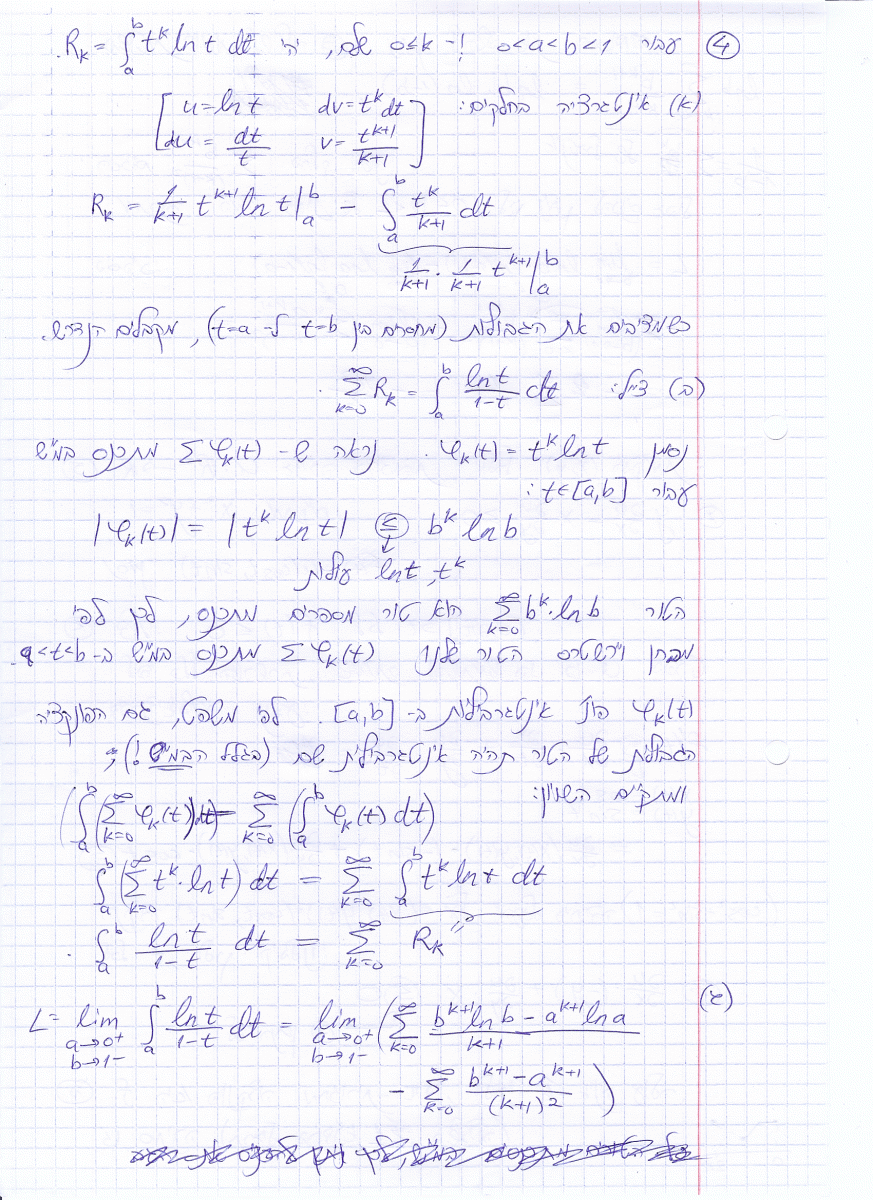 ④ עבור 0<a<b<1 ו- 0≤k שלם, יהי R_k = ∫_a^b t^k ln t dt.
(א) אינטגרציה בחלקים: [u = ln t dv = t^k dt
du = dt/t v = t^{k+1}/(k+1)]
R_k = 1/(k+1) t^{k+1} ln t |_a^b - ∫_a^b t^k/(k+1) dt
1/(k+1) · 1/(k+1) t^{k+1} |_a^b
כשמציבים את הגבולות (מחסרים בין t=b ל- t=a), מקבלים הנדרש.
(ב) צ"ל: Σ_{k=0}^∞ R_k = ∫_a^b ln t/(1-t) dt.
נסמן φ_k(t) = t^k ln t. נראה ש- Σφ_k(t) מתכנס במ"ש
עבור t∈[a,b]:
|φ_k(t)| = |t^k ln t| ≤ b^k ln b
t^k, ln t עולות
הטור Σ_{k=0}^∞ b^k·ln b הוא טור מספרים מתכנס, לכן לפי
מבחן ויירשטרס הטור שלנו Σφ_k(t) מתכנס במ"ש ב- a<t<b.
φ_k(t) פונ' אינטגרביליות ב- [a,b]. לפי משפט, גם הפונקציה
הגבולית של הטור תהיה אינטגרבילית שם (בגלל הבמ"ש!);
ומתקיים השוויון:
(∫_a^b (Σ_{k=0}^∞ φ_k(t)) dt = Σ_{k=0}^∞ (∫_a^b φ_k(t) dt)
∫_a^b (Σ_{k=0}^∞ t^k·ln t) dt = Σ_{k=0}^∞ ∫_a^b t^k ln t dt
∫_a^b ln t/(1-t) dt = Σ_{k=0}^∞ R_k.
(ג) L = lim_{a→0+ b→1-} ∫_a^b ln t/(1-t) dt = lim_{a→0+ b→1-} (Σ_{k=0}^∞ (b^{k+1} ln b - a^{k+1} ln a)/(k+1)
- Σ_{k=0}^∞ (b^{k+1} - a^{k+1})/(k+1)^2)